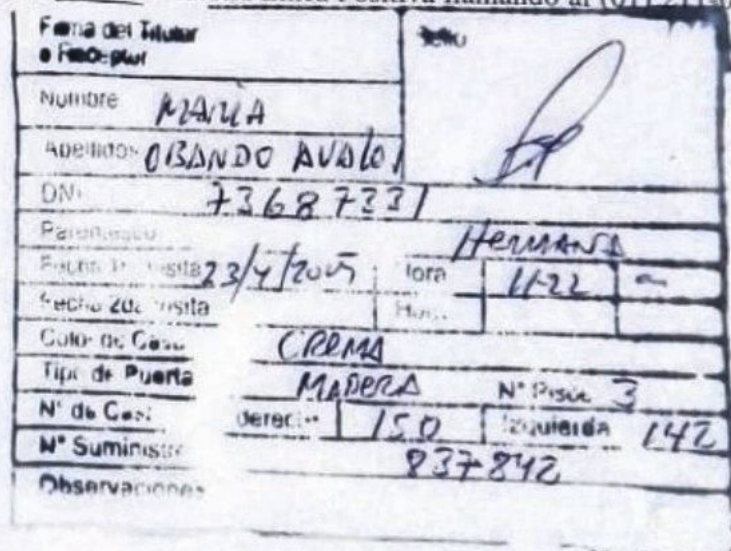 llamando al
Firma del Titular
o Receptor
Sello
Nombre MARIA
Apellidos OBANDO AVALOS
DNI 73687331
Parentesco HERMANA
Fecha 1ª visita 23/4/2005 Hora 11-22
Fecha 2da visita Hora
Color de Casa CREMA
Tipo de Puerta MADERA N° Pisos 3
N° de Casa derecha 150 Izquierda 142
N° Suministro 837842
Observaciones